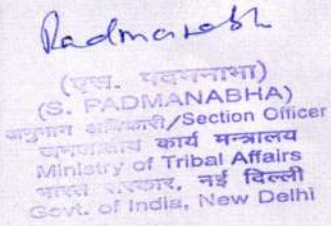 Padmanabh
(एस. पद्मनाभा)
(S. PADMANABHA)
अनुभाग अधिकारी/Section Officer
जनजातीय कार्य मन्त्रालय
Ministry of Tribal Affairs
भारत सरकार, नई दिल्ली
Govt. of India, New Delhi